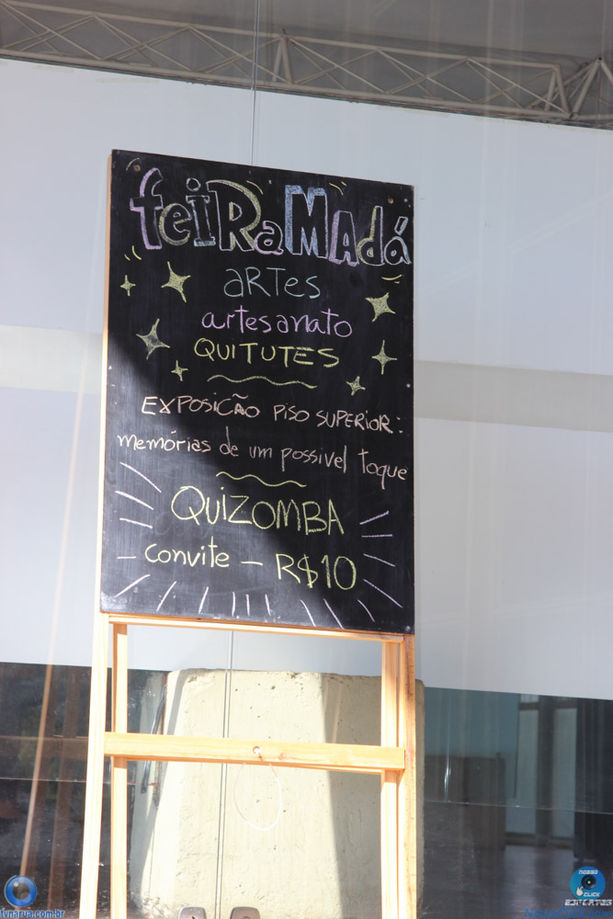 feiRaMAdá
aRTes
artesanato
QUITUTES
EXPOSIÇÃO PISO SUPERIOR:
memórias de um possivel toque
QUIZOMBA
convite — R$10
tvnarua.com.br
nosso
CLICK